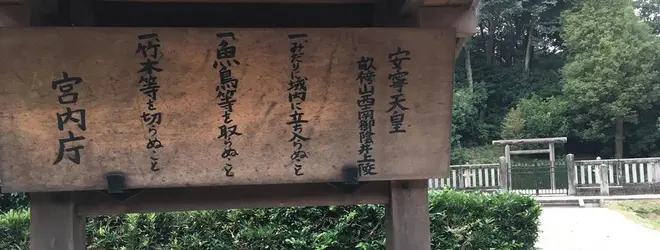 安寧天皇
畝傍山西南御陰井上陵
一、みだりに域内に立ち入らぬこと
一、魚鳥等を取らぬこと
一、竹木等を切らぬこと
宮内庁